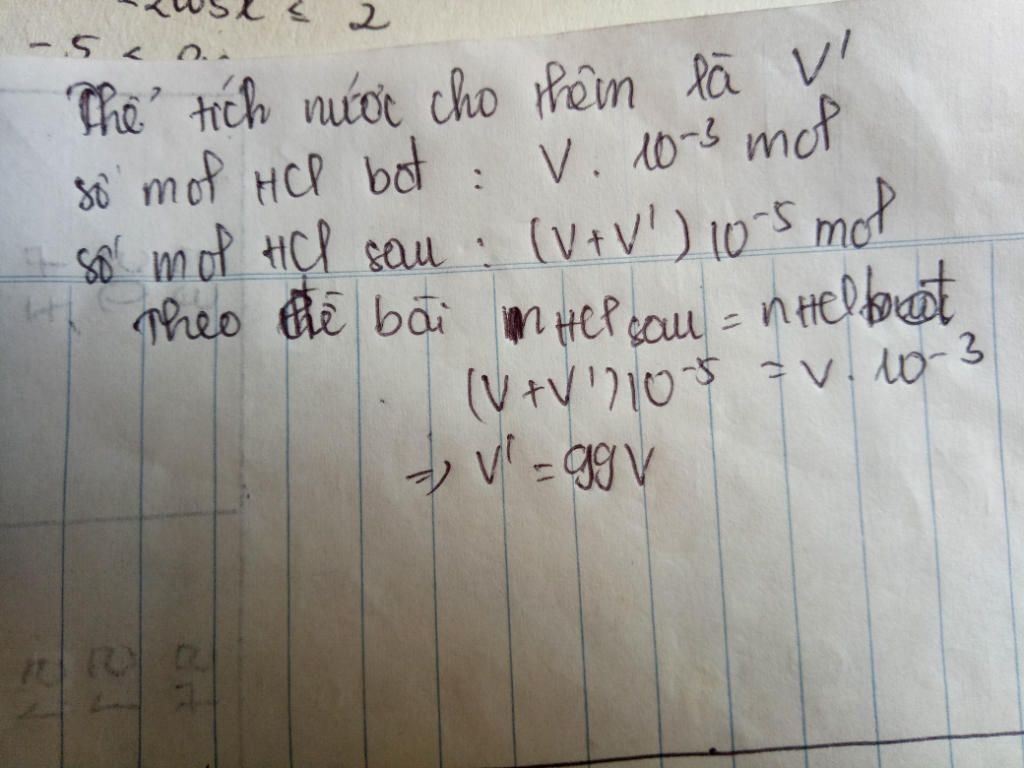 -2cosx ≤ 2
-5 ≤
Thể tích nước cho thêm là V'
số mol HCl bđt : V. 10⁻³ mol
số mol HCl sau : (V+V') 10⁻⁵ mol
Theo đề bài nHCl sau = nHCl bđt
(V+V')10⁻⁵ = V. 10⁻³
=> V' = 99V